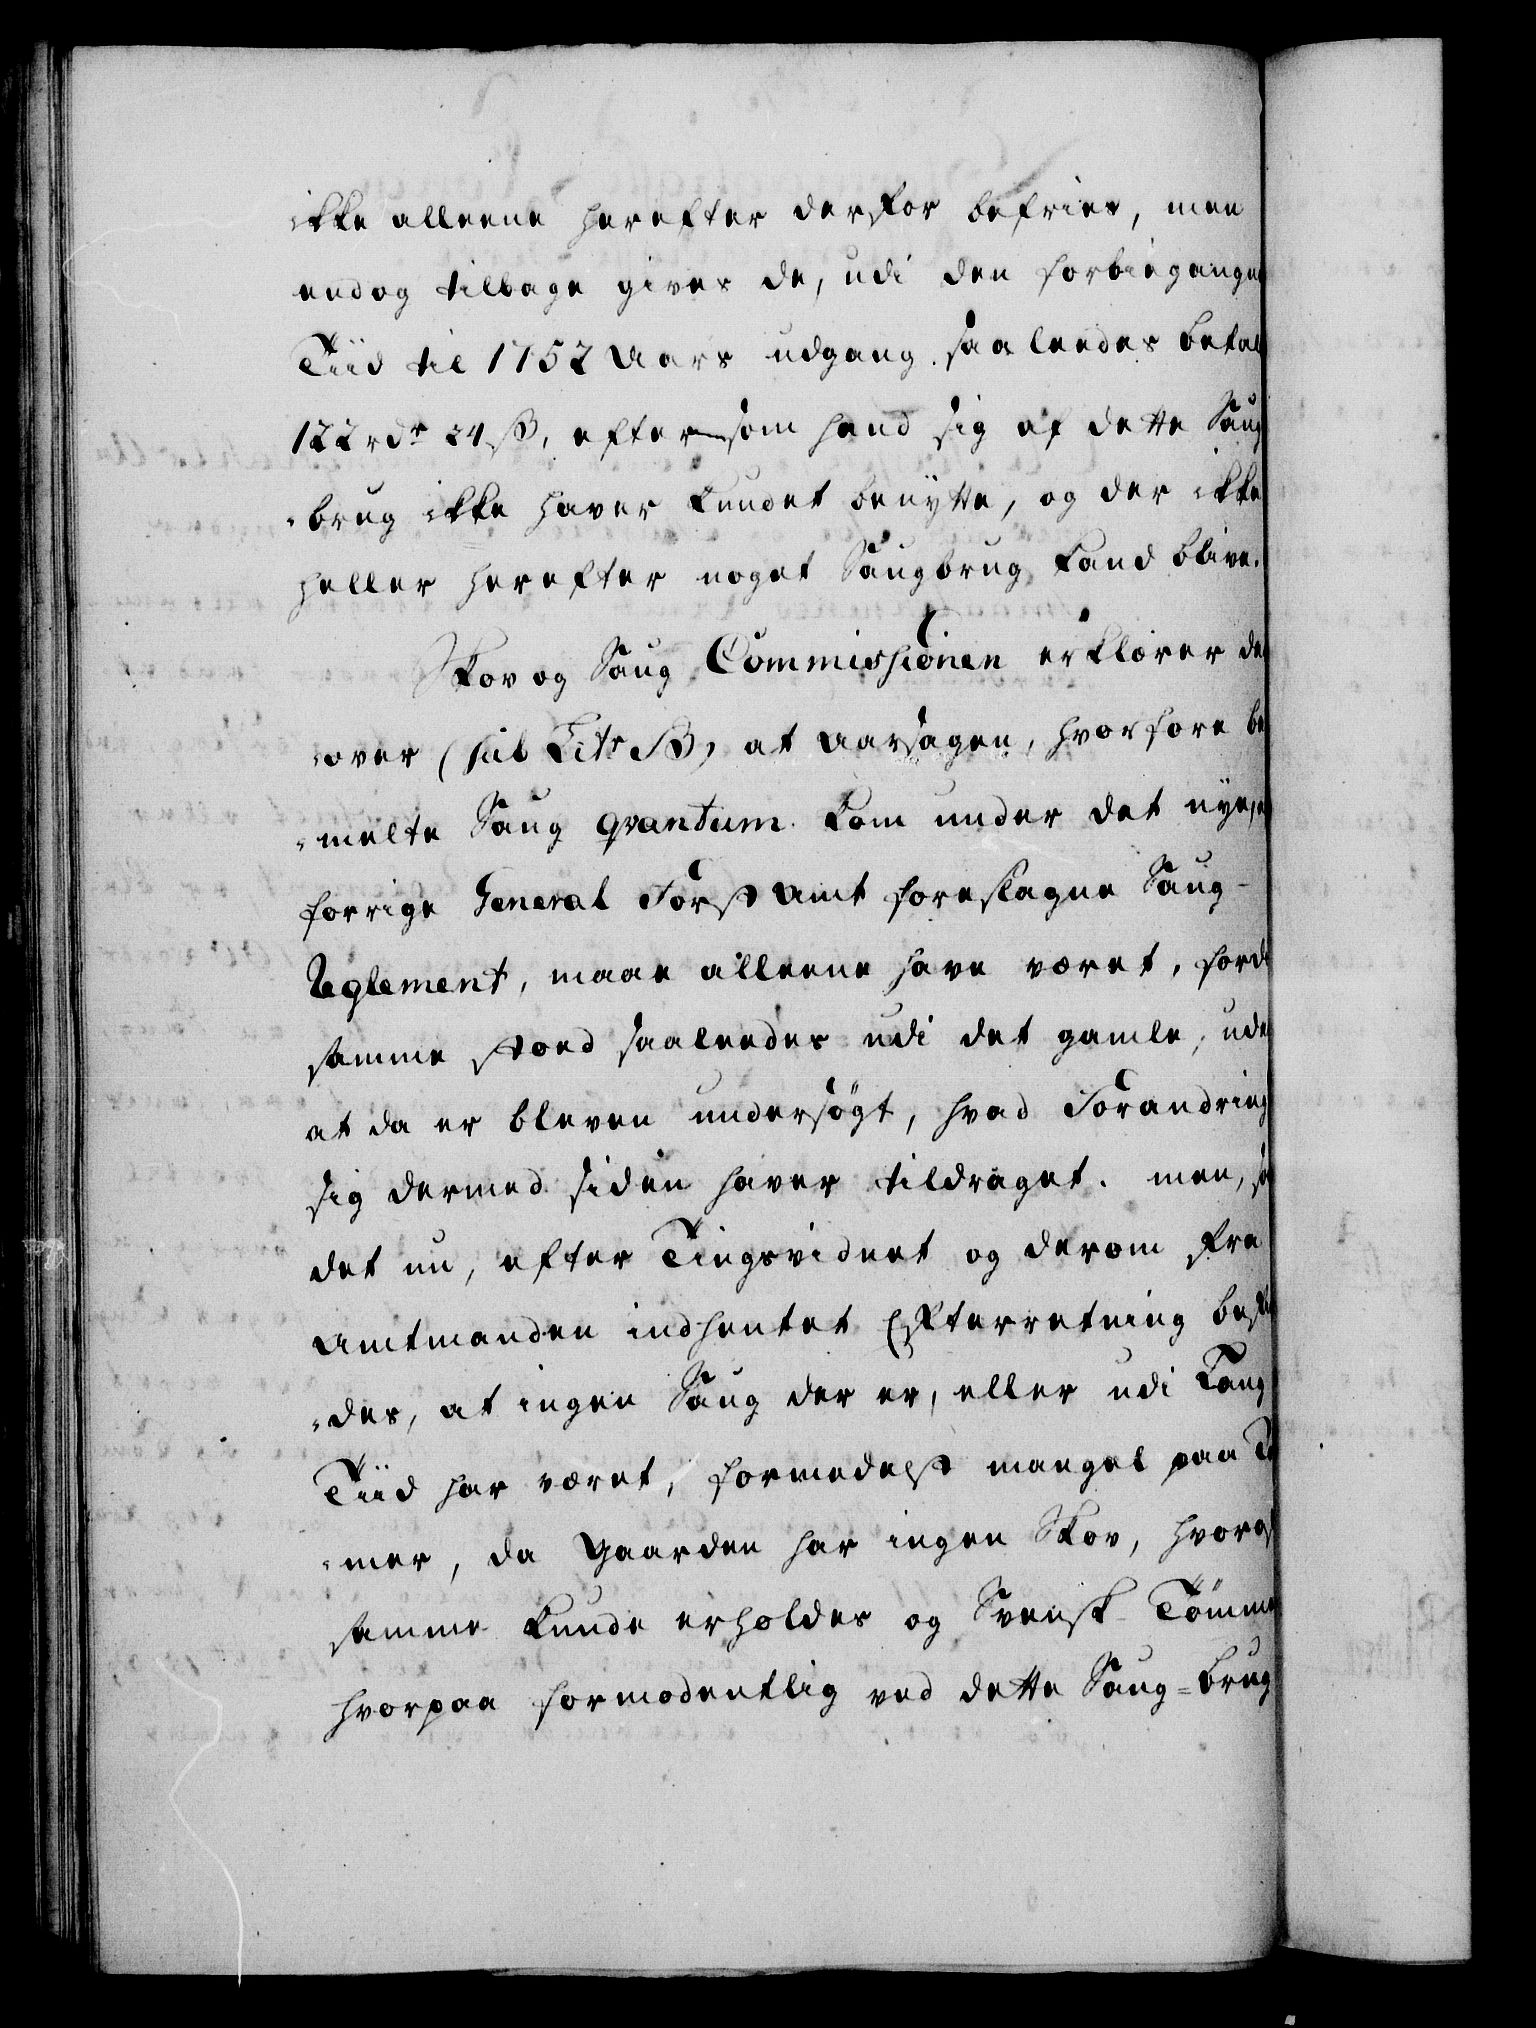 ikke alleene herefter derfor befries, men
endog tilbage gives de, udi den forbiegangne
Tiid til 1752 Aars udgang saaleedes betal
122 rdr 24 ß, efter som hand sig af dette Saug
-brug ikke haver kundet benytte, og der ikke
heller herefter noget Saugbrug kand blive.
Skov og Saug Commissionen erklærer der
-over (sub Litr B) at Aarsagen, hvorfore be
-melte Saug qvantum kom under det nye, af
forrige General Forst Amt foreslagne Saug-
Reglement, maae alleene have været, fordi
samme stoed saaleedes udi det gamle, uden
at da er bleven undersøgt, hvad Forandring
sig dermed siden haver tildraget. men, som
det nu, efter Tingsvidnet og derom fra
Amtmanden indhentet Efterretning befin
-des, at ingen Saug der er, eller udi Lang
Tiid har været, formedelst mangel paa Tø
-mer, da Gaarden har ingen Skov, hvoraf
samme kunde erholdes og Svensk Tømmer
hvorpaa formodentlig ved dette Saug-brug